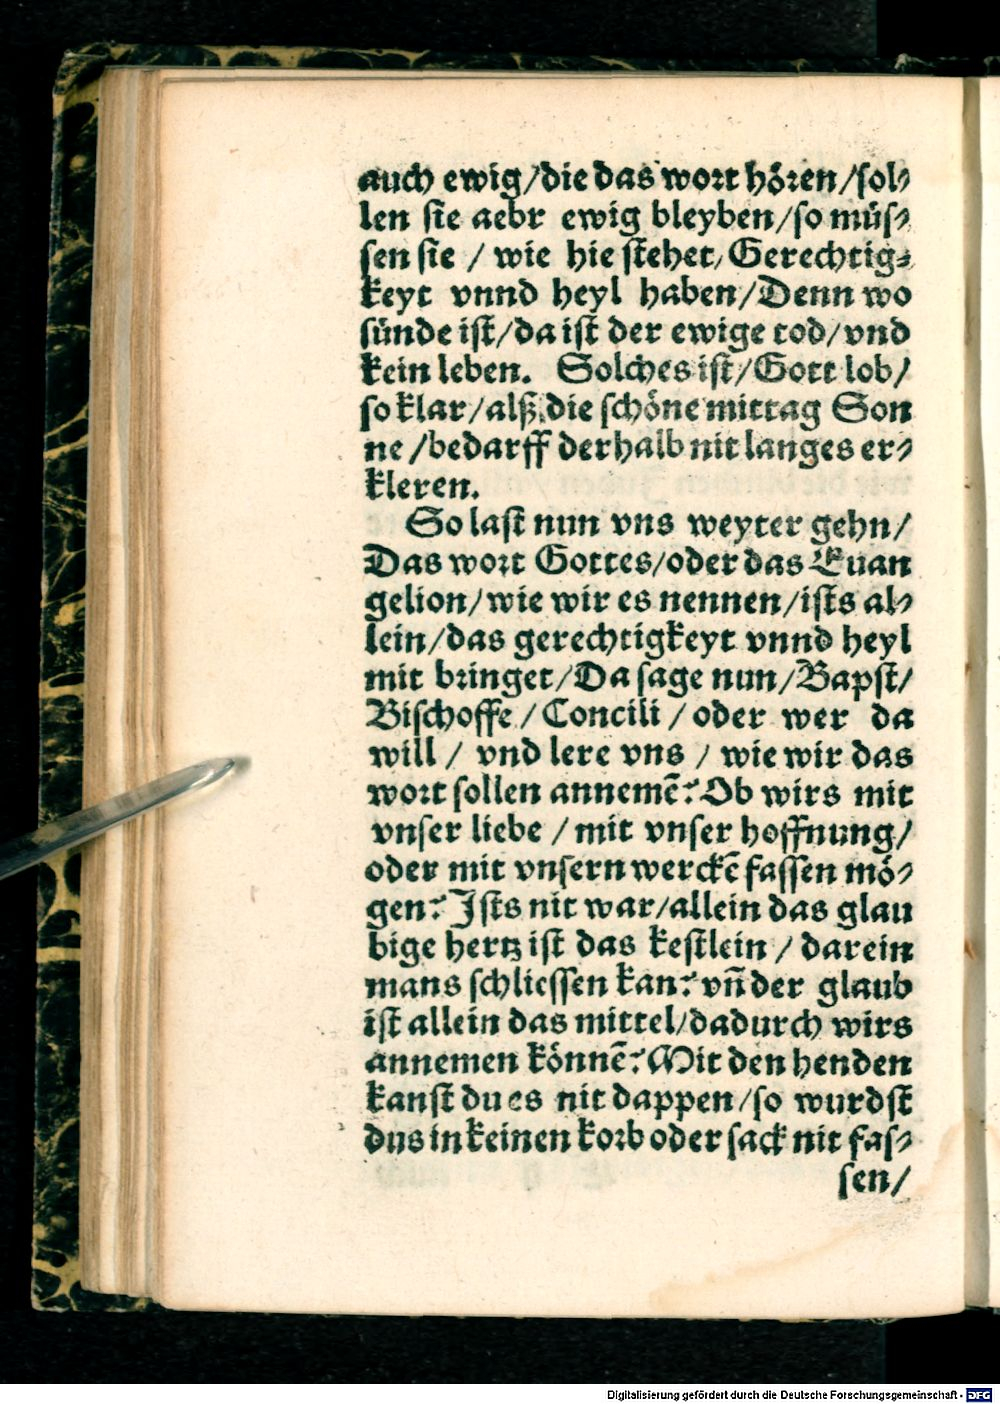 auch ewig/die das wort hören/sol⸗
len sie aebr ewig bleyben/so müs⸗
sen sie / wie hie stehet/ Gerechtig⸗
keyt vnnd heyl haben/Denn wo
sünde ist/da ist der ewige tod/vnd
kein leben. Solches ist/Gott lob/
so klar/alß die schöne mittag Son
ne /bedarff derhalb nit langes er⸗
kleren.
So last nun vns weyter gehn/
Das wort Gottes/oder das Euan
gelion/wie wir es nennen/ists al⸗
lein/das gerechtigkeyt vnnd heyl
mit bringet/Da sage nun/Bapst/
Bischoffe / Concili / oder wer da
will / vnd lere vns / wie wir das
wort sollen annemē? Ob wirs mit
vnser liebe / mit vnser hoffnung/
oder mit vnsern werckē fassen mö⸗
gen? Ists nit war/allein das glau
bige hertz ist das kestlein / darein
mans schliessen kan? vn̄ der glaub
ist allein das mittel/dadurch wirs
annemen könnē? Mit den henden
kanst du es nit dappen/so wurdst
dus in keinen korb oder sack nit fas⸗
sen/
Digitalisierung gefördert durch die Deutsche Forschungsgemeinschaft - DFG